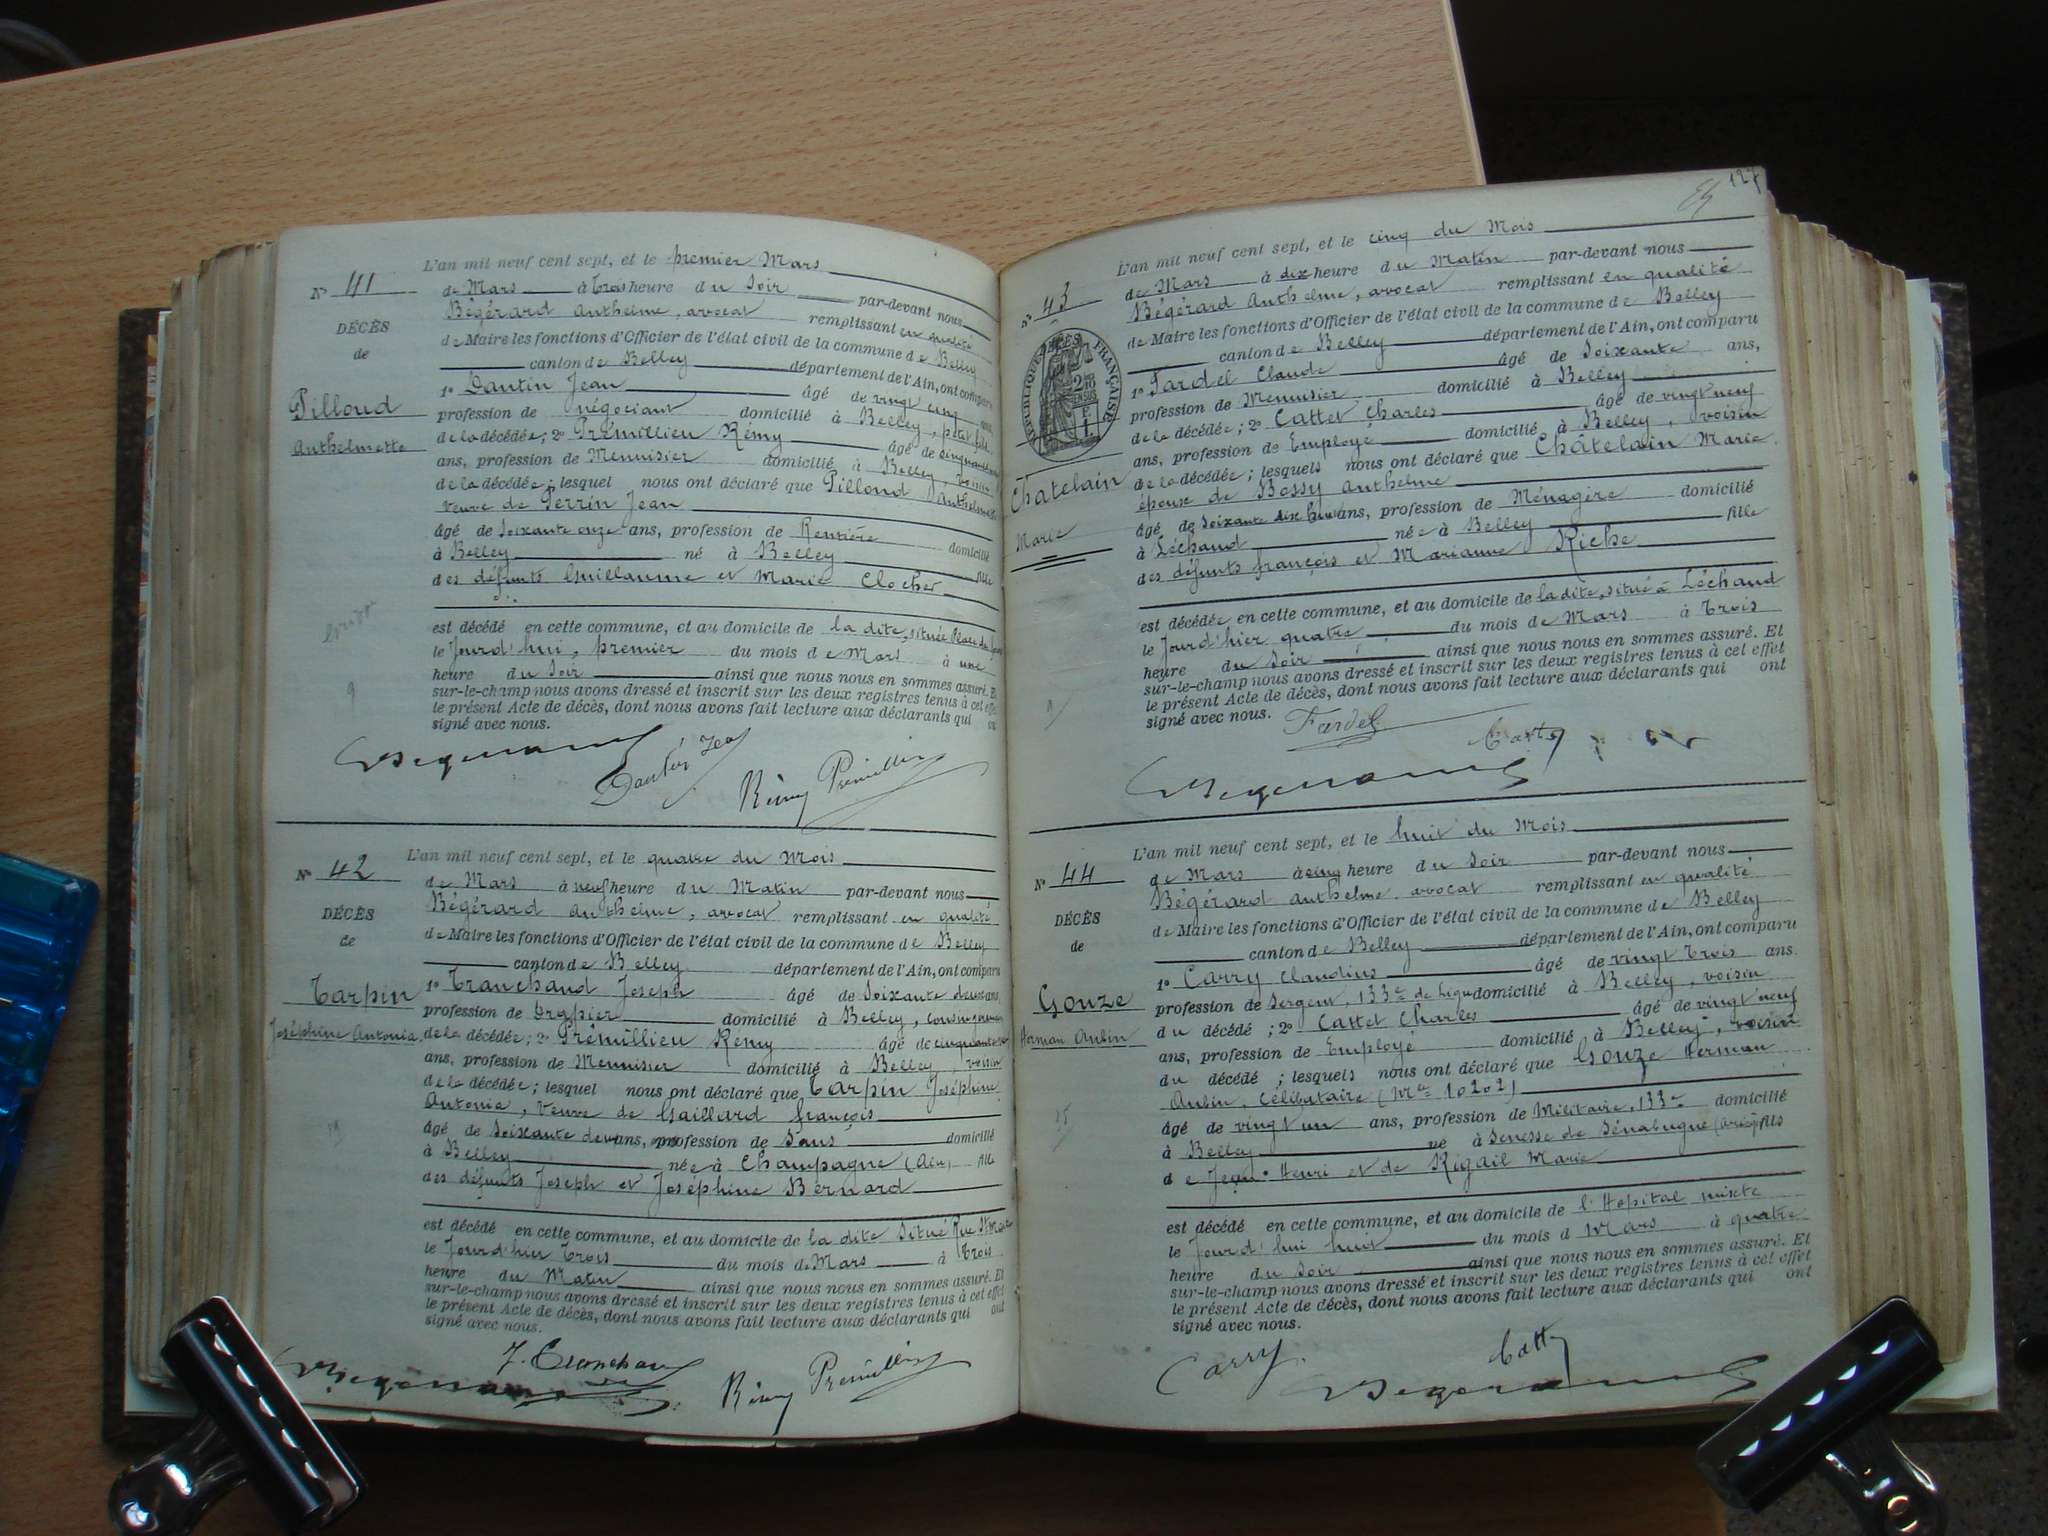 L'an mil neuf cent sept, et le premier Mars
N° 41
de Mars à trois heure du Soir par-devant nous
Bégérard Anthelme, avocat remplissant en qualité
DÉCÈS
de Maire les fonctions d'Officier de l'état civil de la commune de Belley
de
canton de Belley département de l'Ain, ont comparu
1° Dantin Jean âgé de vingt cinq ans,
Pilloud
profession de négociant domicilié à Belley, petit fils
Anthelmette
de la décédée; 2° Prémillieu Rémy âgé de
ans, profession de Menuisier domicilié à Belley, voisin
de la décédée; lesquel nous ont déclaré que Pilloud Anthelmette
veuve de Perrin Jean
âgé de Soixante onze ans, profession de Rentière domicilié
à Belley né à Belley fille
des défunts Guillaume et Marie Clocher
est décédé en cette commune, et au domicile de la dite, située Place du
le Jourd'hui, premier du mois de Mars à une
heure du Soir ainsi que nous nous en sommes assuré. Et
sur-le-champ nous avons dressé et inscrit sur les deux registres tenus à cet effet
le présent Acte de décès, dont nous avons fait lecture aux déclarants qui ont
signé avec nous.
Dantin Jean
Rémy Prémillieu
L'an mil neuf cent sept, et le quatre du Mois
N° 42
de Mars à neuf heure du Matin par-devant nous
Bégérard Anthelme, avocat remplissant en qualité
DÉCÈS
de Maire les fonctions d'Officier de l'état civil de la commune de Belley
de
canton de Belley département de l'Ain, ont comparu
1° Tranchand Joseph âgé de Soixante deux ans,
Tarpin
profession de Drapier domicilié à Belley, cousin germain
Joséphine Antonia
de la décédée; 2° Prémillieu Rémy âgé de
ans, profession de Menuisier domicilié à Belley, voisin
de la décédée; lesquel nous ont déclaré que Tarpin Joséphine
Antonia, veuve de Gaillard françois
âgé de Soixante deux ans, profession de Sans domicilié
à Belley née à Champagne (Ain) fille
des défunts Joseph et Joséphine Bernard
est décédé en cette commune, et au domicile de la dite Situé Rue St
le Jourd'hier trois du mois de Mars à trois
heure du Matin ainsi que nous nous en sommes assuré. Et
sur-le-champ nous avons dressé et inscrit sur les deux registres tenus à cet effet
le présent Acte de décès, dont nous avons fait lecture aux déclarants qui ont
signé avec nous.
J. Tranchand
Rémy Prémillieu
127
L'an mil neuf cent sept, et le cinq du Mois
N° 43
de Mars à dix heure du Matin par-devant nous
Bégérard Anthelme, avocat remplissant en qualité
de Maire les fonctions d'Officier de l'état civil de la commune de Belley
canton de Belley département de l'Ain, ont comparu
RÉPUBLIQUE FRANÇAISE
1° Fardel Claude âgé de Soixante ans,
profession de Menuisier domicilié à Belley
de la décédée; 2° Cattet Charles âgé de vingt neuf
ans, profession de Employé domicilié à Belley, voisin
de la décédée; lesquels nous ont déclaré que Châtelain Marie
Chatelain
épouse de Bossy Anthelme
Marie
âgé de Soixante dix huit ans, profession de Ménagère domicilié
à Léchaud née à Belley fille
des défunts françois et Marianne Riche
est décédée en cette commune, et au domicile de la dite, situé à Léchaud
le Jourd'hier quatre du mois de Mars à trois
heure du Soir ainsi que nous nous en sommes assuré. Et
sur-le-champ nous avons dressé et inscrit sur les deux registres tenus à cet effet
le présent Acte de décès, dont nous avons fait lecture aux déclarants qui ont
signé avec nous.
Fardel
L'an mil neuf cent sept, et le huit du Mois
N° 44
de Mars à cinq heure du Soir par-devant nous
Bégérard Anthelme, avocat remplissant en qualité
DÉCÈS
de Maire les fonctions d'Officier de l'état civil de la commune de Belley
de
canton de Belley département de l'Ain, ont comparu
1° Carry Claudius âgé de vingt trois ans.
Gouze
profession de Sergent, 133e de ligne domicilié à Belley, voisin
Herman Aubin
du décédé; 2° Cattet Charles âgé de vingt neuf
ans, profession de Employé domicilié à Belley, voisin
du décédé; lesquels nous ont déclaré que Gouze Herman
Aubin, Célibataire (Mle 10202)
âgé de vingt un ans, profession de Militaire, 133e domicilié
à Belley né à Senesse de Sénabugue (Ariège) fils
de Jean-Henri et de Rigail Marie
est décédé en cette commune, et au domicile de l'Hopital mixte
le Jourd'hui huit du mois d Mars à quatre
heure du Soir ainsi que nous nous en sommes assuré. Et
sur-le-champ nous avons dressé et inscrit sur les deux registres tenus à cet effet
le présent Acte de décès, dont nous avons fait lecture aux déclarants qui ont
signé avec nous.
Carry